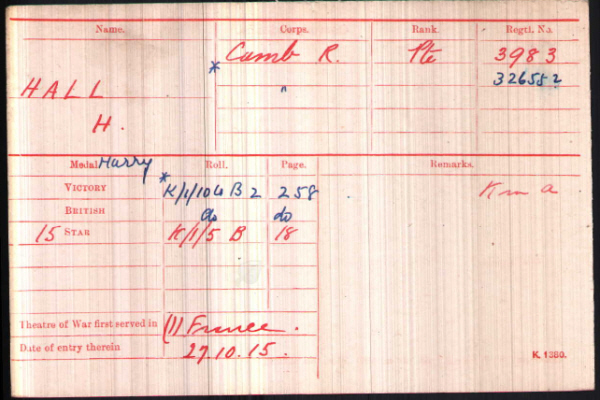 Name. Corps. Rank. Regtl. No.
Camb R. Pte 3983
* " 326552
HALL
H.
Harry
Medal Roll. Page. Remarks.
VICTORY * K/1/104 B 2 258 K in a
BRITISH do do
15 STAR K/1/5 B 18
Theatre of War first served in (1) France.
Date of entry therein 27.10.15.
K. 1380.